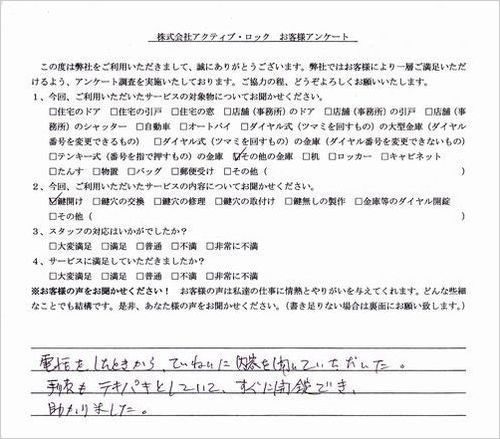 株式会社アクティブ・ロック　お客様アンケート
この度は弊社をご利用いただきまして、誠にありがとうございます。弊社ではお客様により一層ご満足いただ
けるよう、アンケート調査を実施いたしております。ご協力の程、どうぞよろしくお願いいたします。
1、今回、ご利用いただいたサービスの対象物についてお聞かせください。
□住宅のドア　□住宅の引戸　□住宅の窓　□店舗（事務所）のドア　□店舗（事務所）の引戸　□店舗（事
務所）のシャッター　□自動車　□オートバイ　□ダイヤル式（ツマミを回すもの）の大型金庫（ダイヤル
番号を変更できるもの）　□ダイヤル式（ツマミを回すもの）の金庫（ダイヤル番号を変更できないもの）
□テンキー式（番号を指で押すもの）の金庫　☑その他の金庫　□机　□ロッカー　□キャビネット
□たんす　□物置　□バッグ　□郵便受け　□その他（　　　　　　　　　　）
2、今回、ご利用いただいたサービスの内容についてお聞かせください。
☑鍵開け　□鍵穴の交換　□鍵穴の修理　□鍵穴の取付け　□鍵無しの製作　□金庫等のダイヤル開錠
□その他（　　　　　　　　　　）
3、スタッフの対応はいかがでしたか？
□大変満足　□満足　□普通　□不満　□非常に不満
4、サービスに満足していただきましたか？
□大変満足　□満足　□普通　□不満　□非常に不満
※お客様の声をお聞かせください！　お客様の声は私達の仕事に情熱とやりがいを与えてくれます。どんな些細
なことでも結構です。是非、あなた様の声をお聞かせください。（書き足りない場合は裏面にお願い致します。）
電話をしたときから、ていねいに内容を聞いていただいた。
手順も テキパキとしていて、すぐに開錠でき、
助かりました。